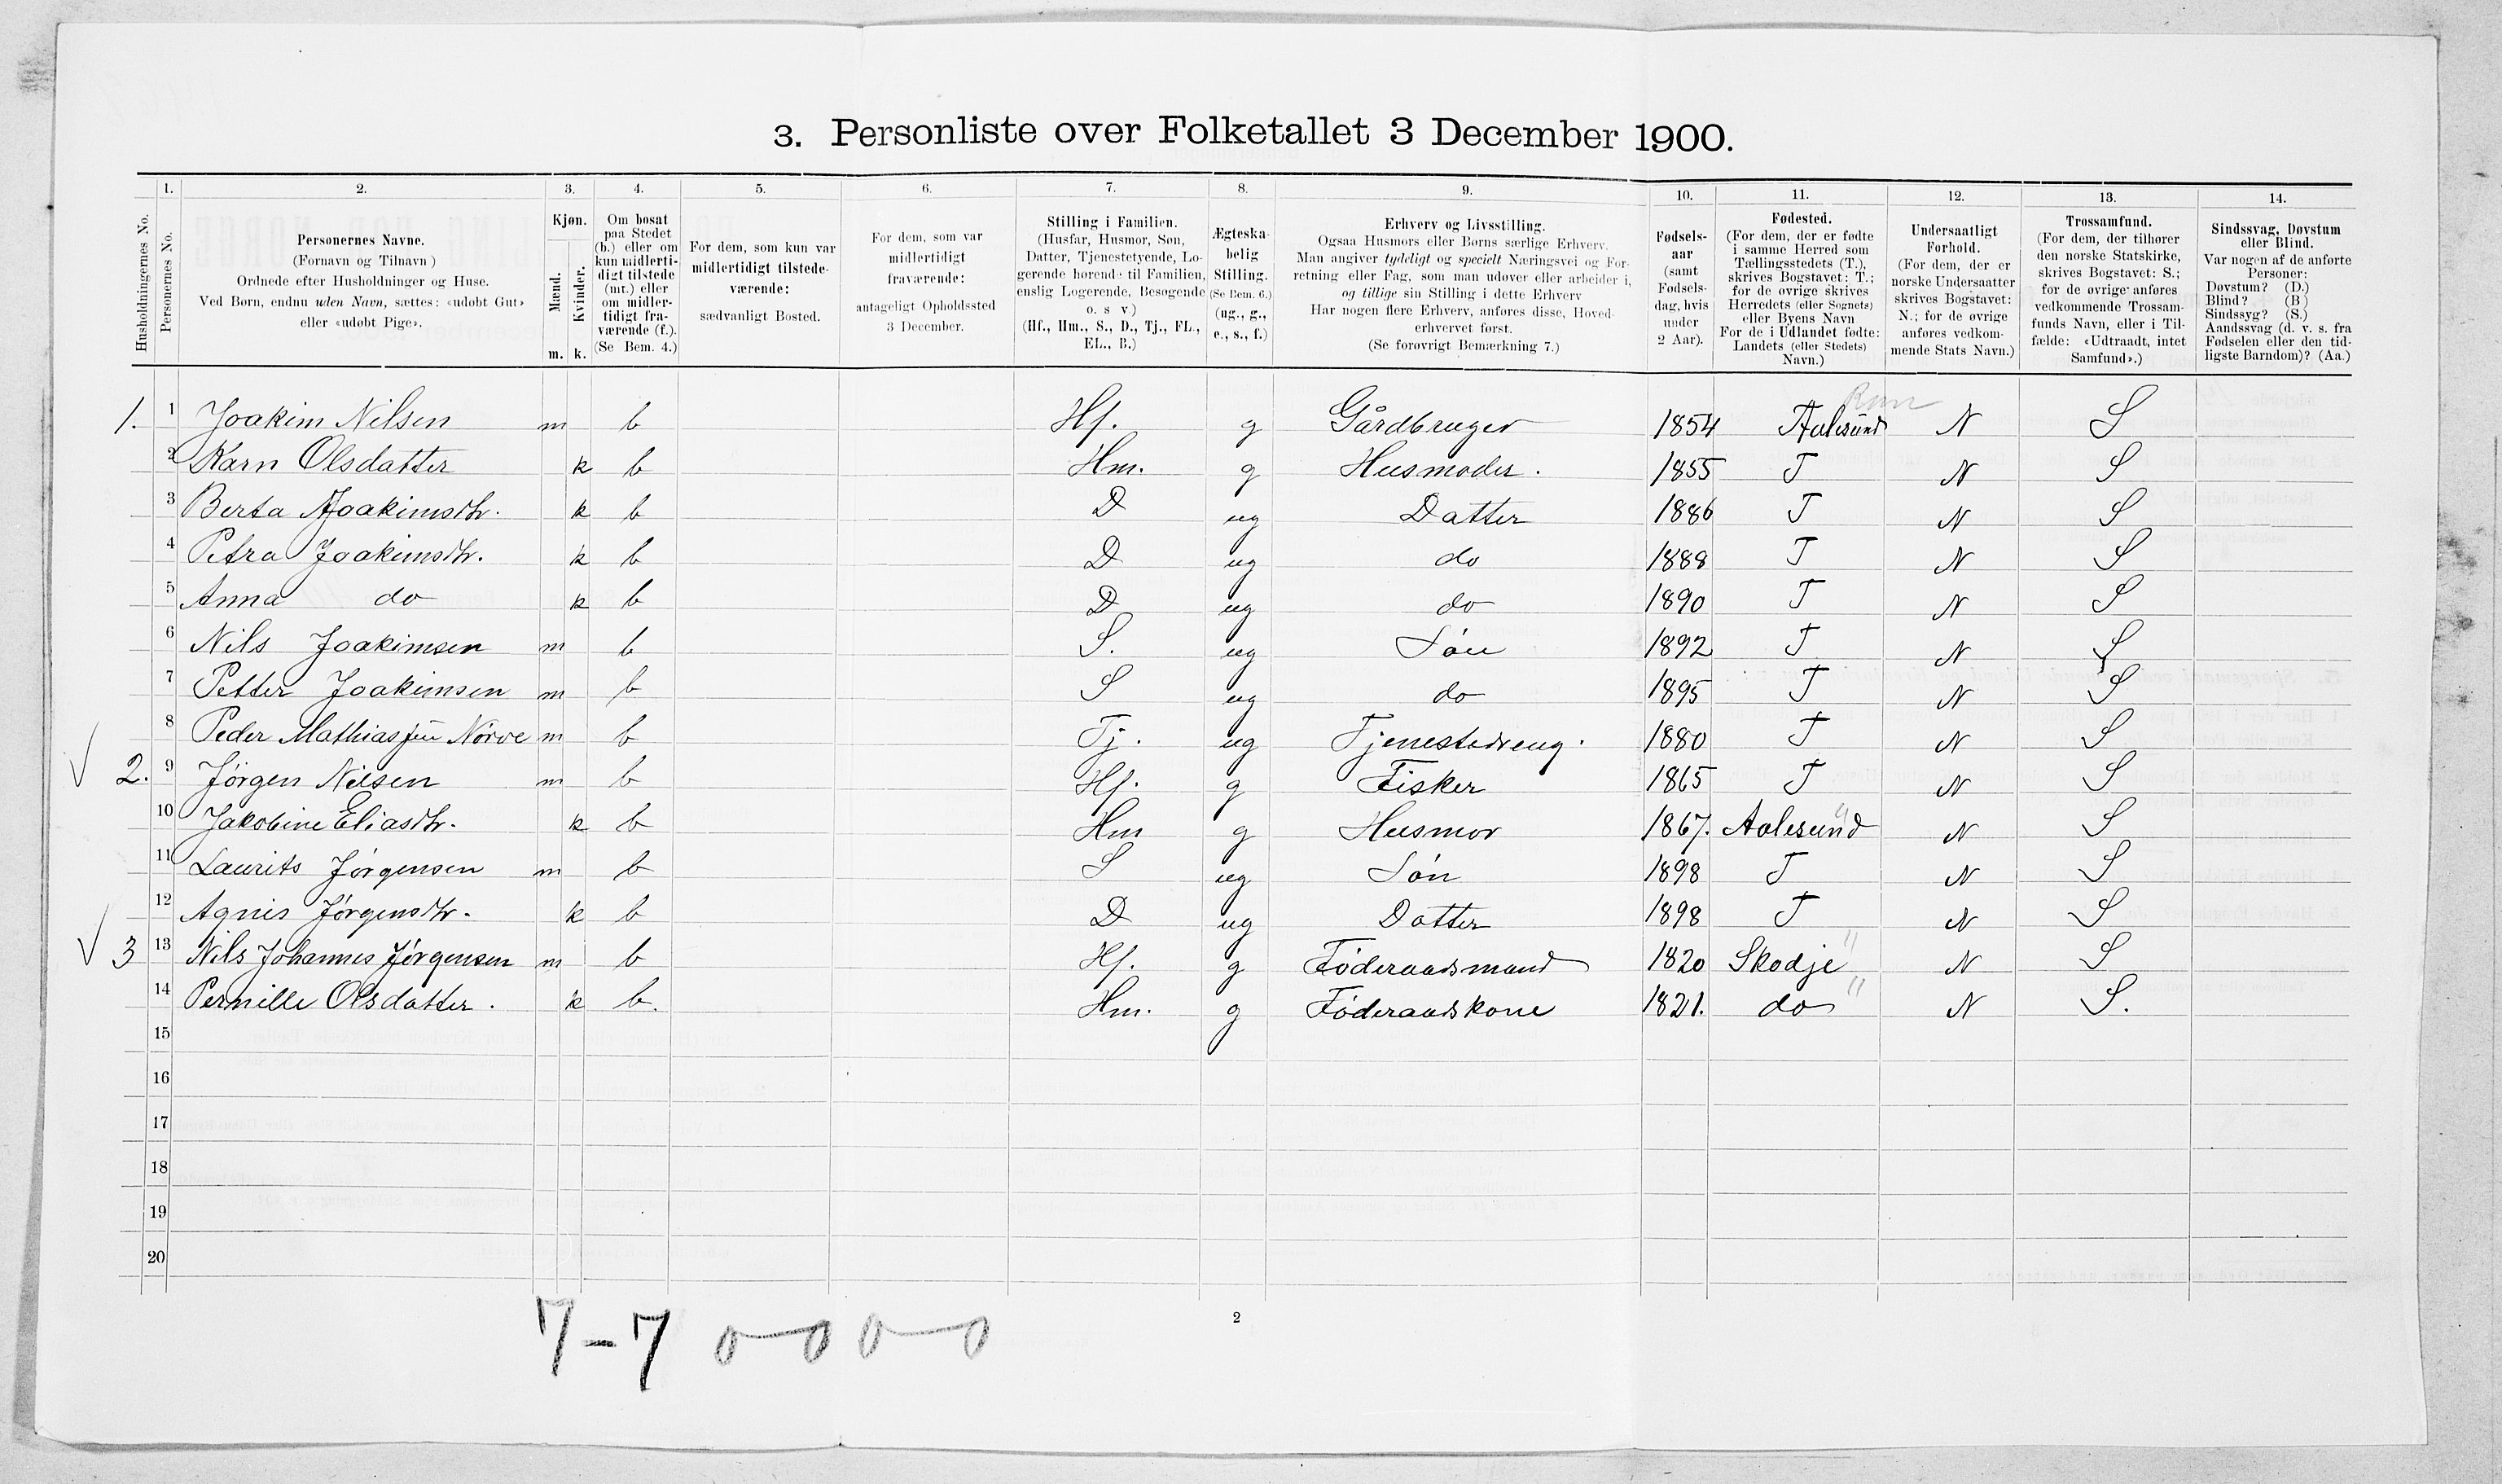 3. Personliste over Folketallet 3 December 1900.
1. 2. 3. 4. 5. 6. 7. 8. 9. 10. 11. 12. 13. 14.
Husholdningernes No.
Personernes No.
Personernes Navne.
(Fornavn og Tilnavn )
Ordnede efter Husholdninger og Huse.
Ved Børn, endnu uden Navn, sættes: «udøbt Gut»
eller «udøbt Pige».
Kjøn.
Mænd.
Kvinder.
m. k.
Om bosat
paa Stedet
(b.) eller om
kun midlerti-
digt tilstede
(mt.) eller
om midler-
tidigt fra-
værende (f.).
(Se Bem. 4.)
For dem, som kun var
midlertidigt tilstede-
værende:
sædvanligt Bosted.
For dem, som var
midlertidigt
fraværende:
antageligt Opholdssted
3 December.
Stilling i Familien.
(Husfar, Husmor, Søn,
Datter, Tjenestetyende, Lo-
gerende hørende til Familien,
enslig Logerende, Besøgende
o. s v)
(Hf., Hm., S., D., Tj., FL.,
EL., B.)
Ægteska-
belig
Stilling.
(Se Bem. 6.)
(ug., g.,
e., s., f.)
Erhverv og Livsstilling.
Ogsaa Husmors eller Børns særlige Erhverv.
Man angiver tydeligt og specielt Næringsvei og For-
retning eller Fag, som man udøver eller arbeider i,
og tillige sin Stilling i dette Erhverv
Har nogen flere Erhverv, anføres disse, Hoved-
erhvervet først.
(Se forøvrigt Bemærkning 7.)
Fødsels-
aar
(samt
Fødsels-
dag, hvis
under
2 Aar).
Fødested.
(For dem, der er fødte
i samme Herred som
Tællingsstedets (T.),
skrives Bogstavet: T.;
for de øvrige skrives
Herredets (eller Sognets)
eller Byens Navn
For de i Udlandet fødte:
Landets (eller Stedets)
Navn.)
Undersaatligt
Forhold.
(For dem, der er
norske Undersaatter
skrives Bogstavet:
N.; for de øvrige
anføres vedkom-
mende Stats Navn.)
Trossamfund.
(For dem, der tilhører
den norske Statskirke,
skrives Bogstavet: S.;
for de øvrige anføres
vedkommende Trossam-
funds Navn, eller i Til-
fælde: «Udtraadt, intet
Samfund».)
Sindssvag, Døvstum
eller Blind.
Var nogen af de anførte
Personer:
Døvstum? (D.)
Blind? (B )
Sindssyg? (S.)
Aandssvag (d. v. s. fra
Fødselen eller den tid-
ligste Barndom)? (Aa.)
1. 1 Joakim Nilsen m b Hf. g Gårdbruger 1854 Aalesund N S
2 Karn Olsdatter k b Hm. g Husmoder. 1855 T N S
3 Berta Joakimsdtr. k b D ug Datter 1886 T N S
4 Petra Joakimsdtr. k b D ug do 1888 T N S
5 Anna do k b D ug do 1890 T N S
6 Nils Joakimsen m b S. ug Søn 1892 T N S
7 Petter Joakimsen m b S ug do 1895 T N S
8 Peder Mathias Nørve m b Tj. ug Tjenestedreng. 1880 T N S
2. 9 Jörgen Nilsen m b Hf. g Fisker 1865 T N S
10 Jakobine Eliasdtr. k b Hm g Husmor 1867. Aalesund N S
11 Laurits Jörgensen m b S ug Søn 1898 T N S
12 Agnis Jörgensdtr. k b D ug Datter 1898 T N S
3 13 Nils Johannes Jörgensen m b Hf. g Føderaadsmand 1820 Skodje N S
14 Pernille Olsdatter. k b. Hm. g Føderaadskone 1821. do N S.
15
16
17
18
19
20
7-7 0-0 0-0
2